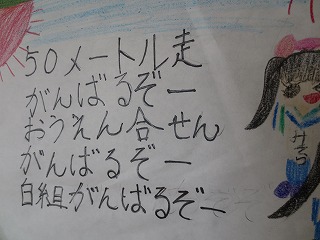 50メートル走
がんばるぞー
おうえん合せん
がんばるぞー
白組がんばるぞー